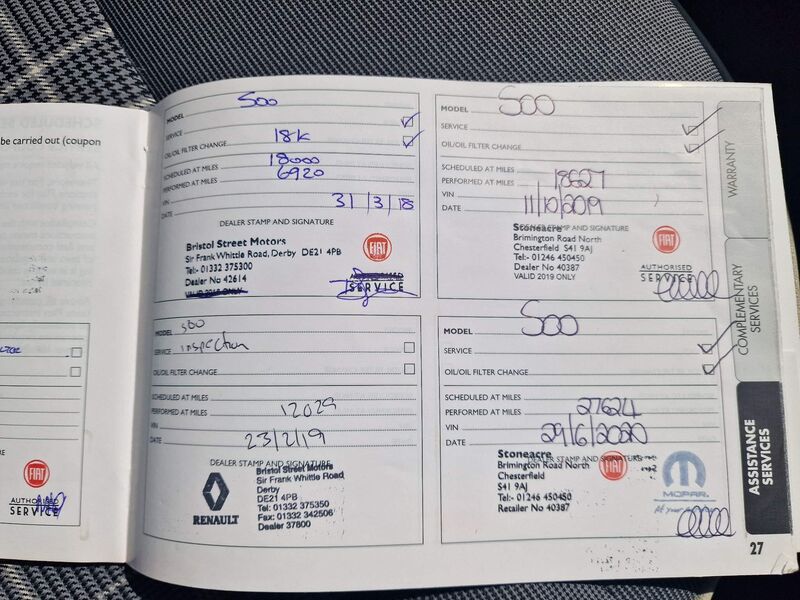 be carried out (coupon
AUTHORISED
SERVICE
MODEL 500
SERVICE
OIL/OIL FILTER CHANGE 18k
18000
SCHEDULED AT MILES
PERFORMED AT MILES 6920
VIN
DATE 31/3/18
DEALER STAMP AND SIGNATURE
Bristol Street Motors
Sir Frank Whittle Road, Derby DE21 4PB
Tel:- 01332 375300
Dealer No 42614
VALID 2018 ONLY
FIAT
AUTHORISED
SERVICE
MODEL 500
SERVICE
OIL/OIL FILTER CHANGE
SCHEDULED AT MILES
PERFORMED AT MILES 18627
VIN
DATE 11/10/2019
DEALER STAMP AND SIGNATURE
Stoneacre
Brimington Road North
Chesterfield S41 9AJ
Tel:- 01246 450450
Dealer No 40387
VALID 2019 ONLY
FIAT
AUTHORISED
SERVICE
MODEL 500
SERVICE inspection
OIL/OIL FILTER CHANGE
SCHEDULED AT MILES
PERFORMED AT MILES 12029
VIN
DATE 23/2/19
DEALER STAMP AND SIGNATURE
RENAULT
Bristol Street Motors
Sir Frank Whittle Road,
Derby
DE21 4PB
Tel: 01332 375350
Fax: 01332 342506
Dealer 37800
MODEL 500
SERVICE
OIL/OIL FILTER CHANGE
SCHEDULED AT MILES
PERFORMED AT MILES 27624
VIN
DATE 29/6/2020
DEALER STAMP AND SIGNATURE
Stoneacre
Brimington Road North
Chesterfield
S41 9AJ
Tel:- 01246 450450
Retailer No 40387
FIAT
MOPAR
WARRANTY
COMPLEMENTARY
SERVICES
ASSISTANCE
SERVICES
27